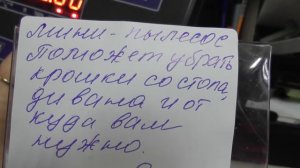 мини-пылесос
поможет убрать
крошки со стола,
дивана и от
куда вам
нужно.